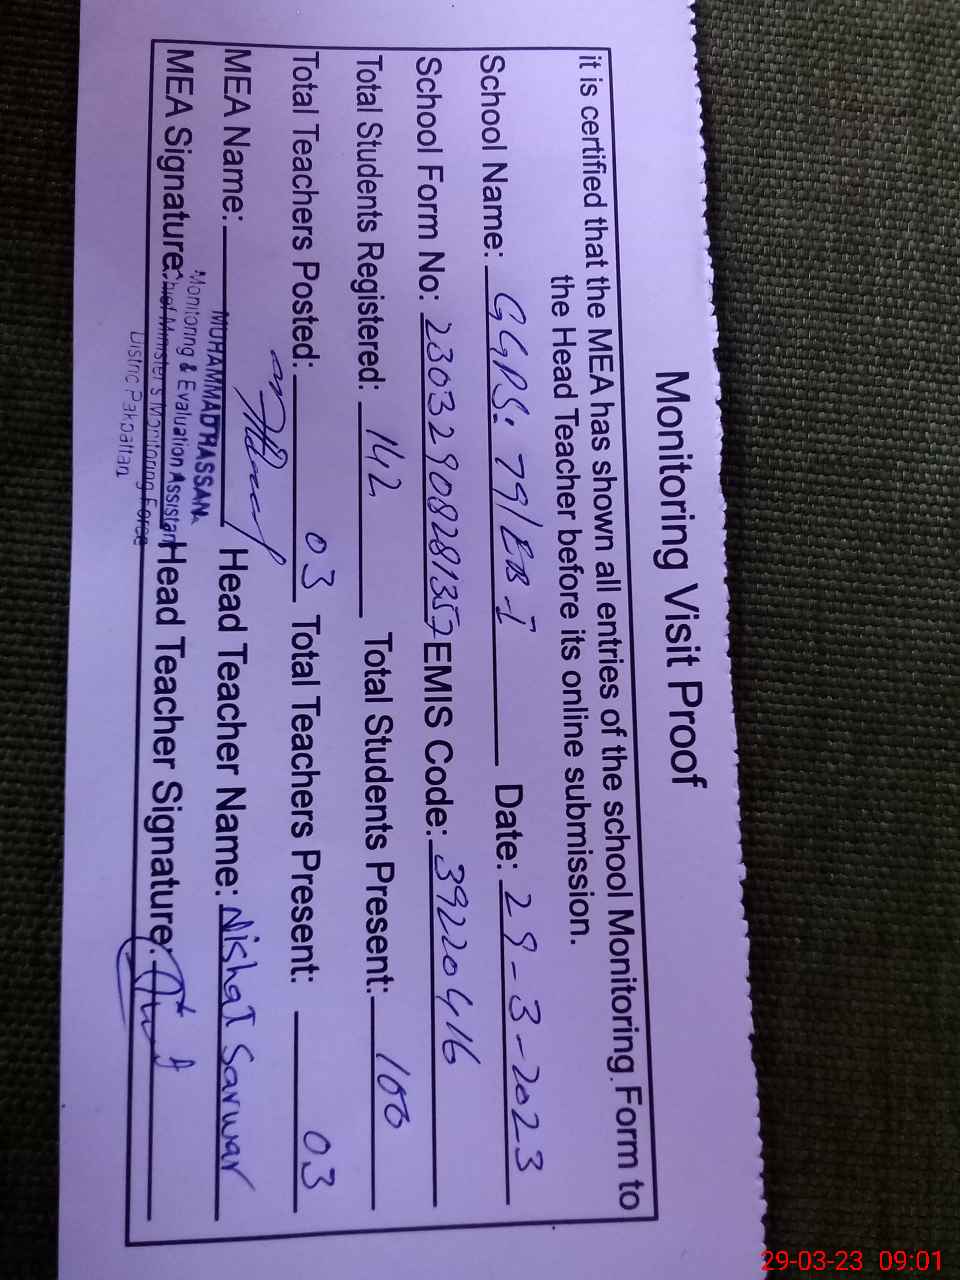 Monitoring Visit Proof
it is certified that the MEA has shown all entries of the school Monitoring Form to
the Head Teacher before its online submission.
School Name: GGPS: 79/EB-I Date: 29-3-2023
School Form No: 23032908281357 EMIS Code: 39220416
Total Students Registered: 142 Total Students Present: 100
Total Teachers Posted: 03 Total Teachers Present: 03
MEA Name: MUHAMMAD HASSAN Head Teacher Name: Nishat Sarwar
Monitoring & Evaluation Assistant
MEA Signature: Chief Minister's Monitoring Force Head Teacher Signature:
Distric Pakpattan
29-03-23 09:01